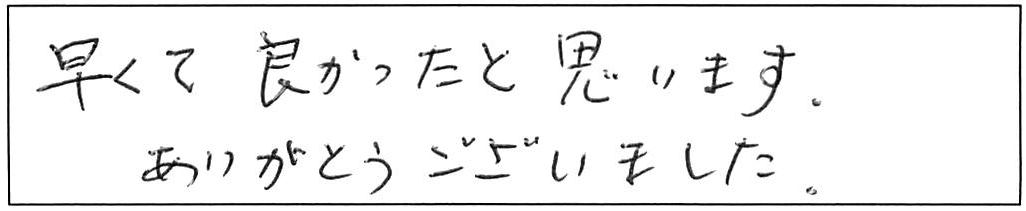 早くて良かったと思います。
ありがとうございました。